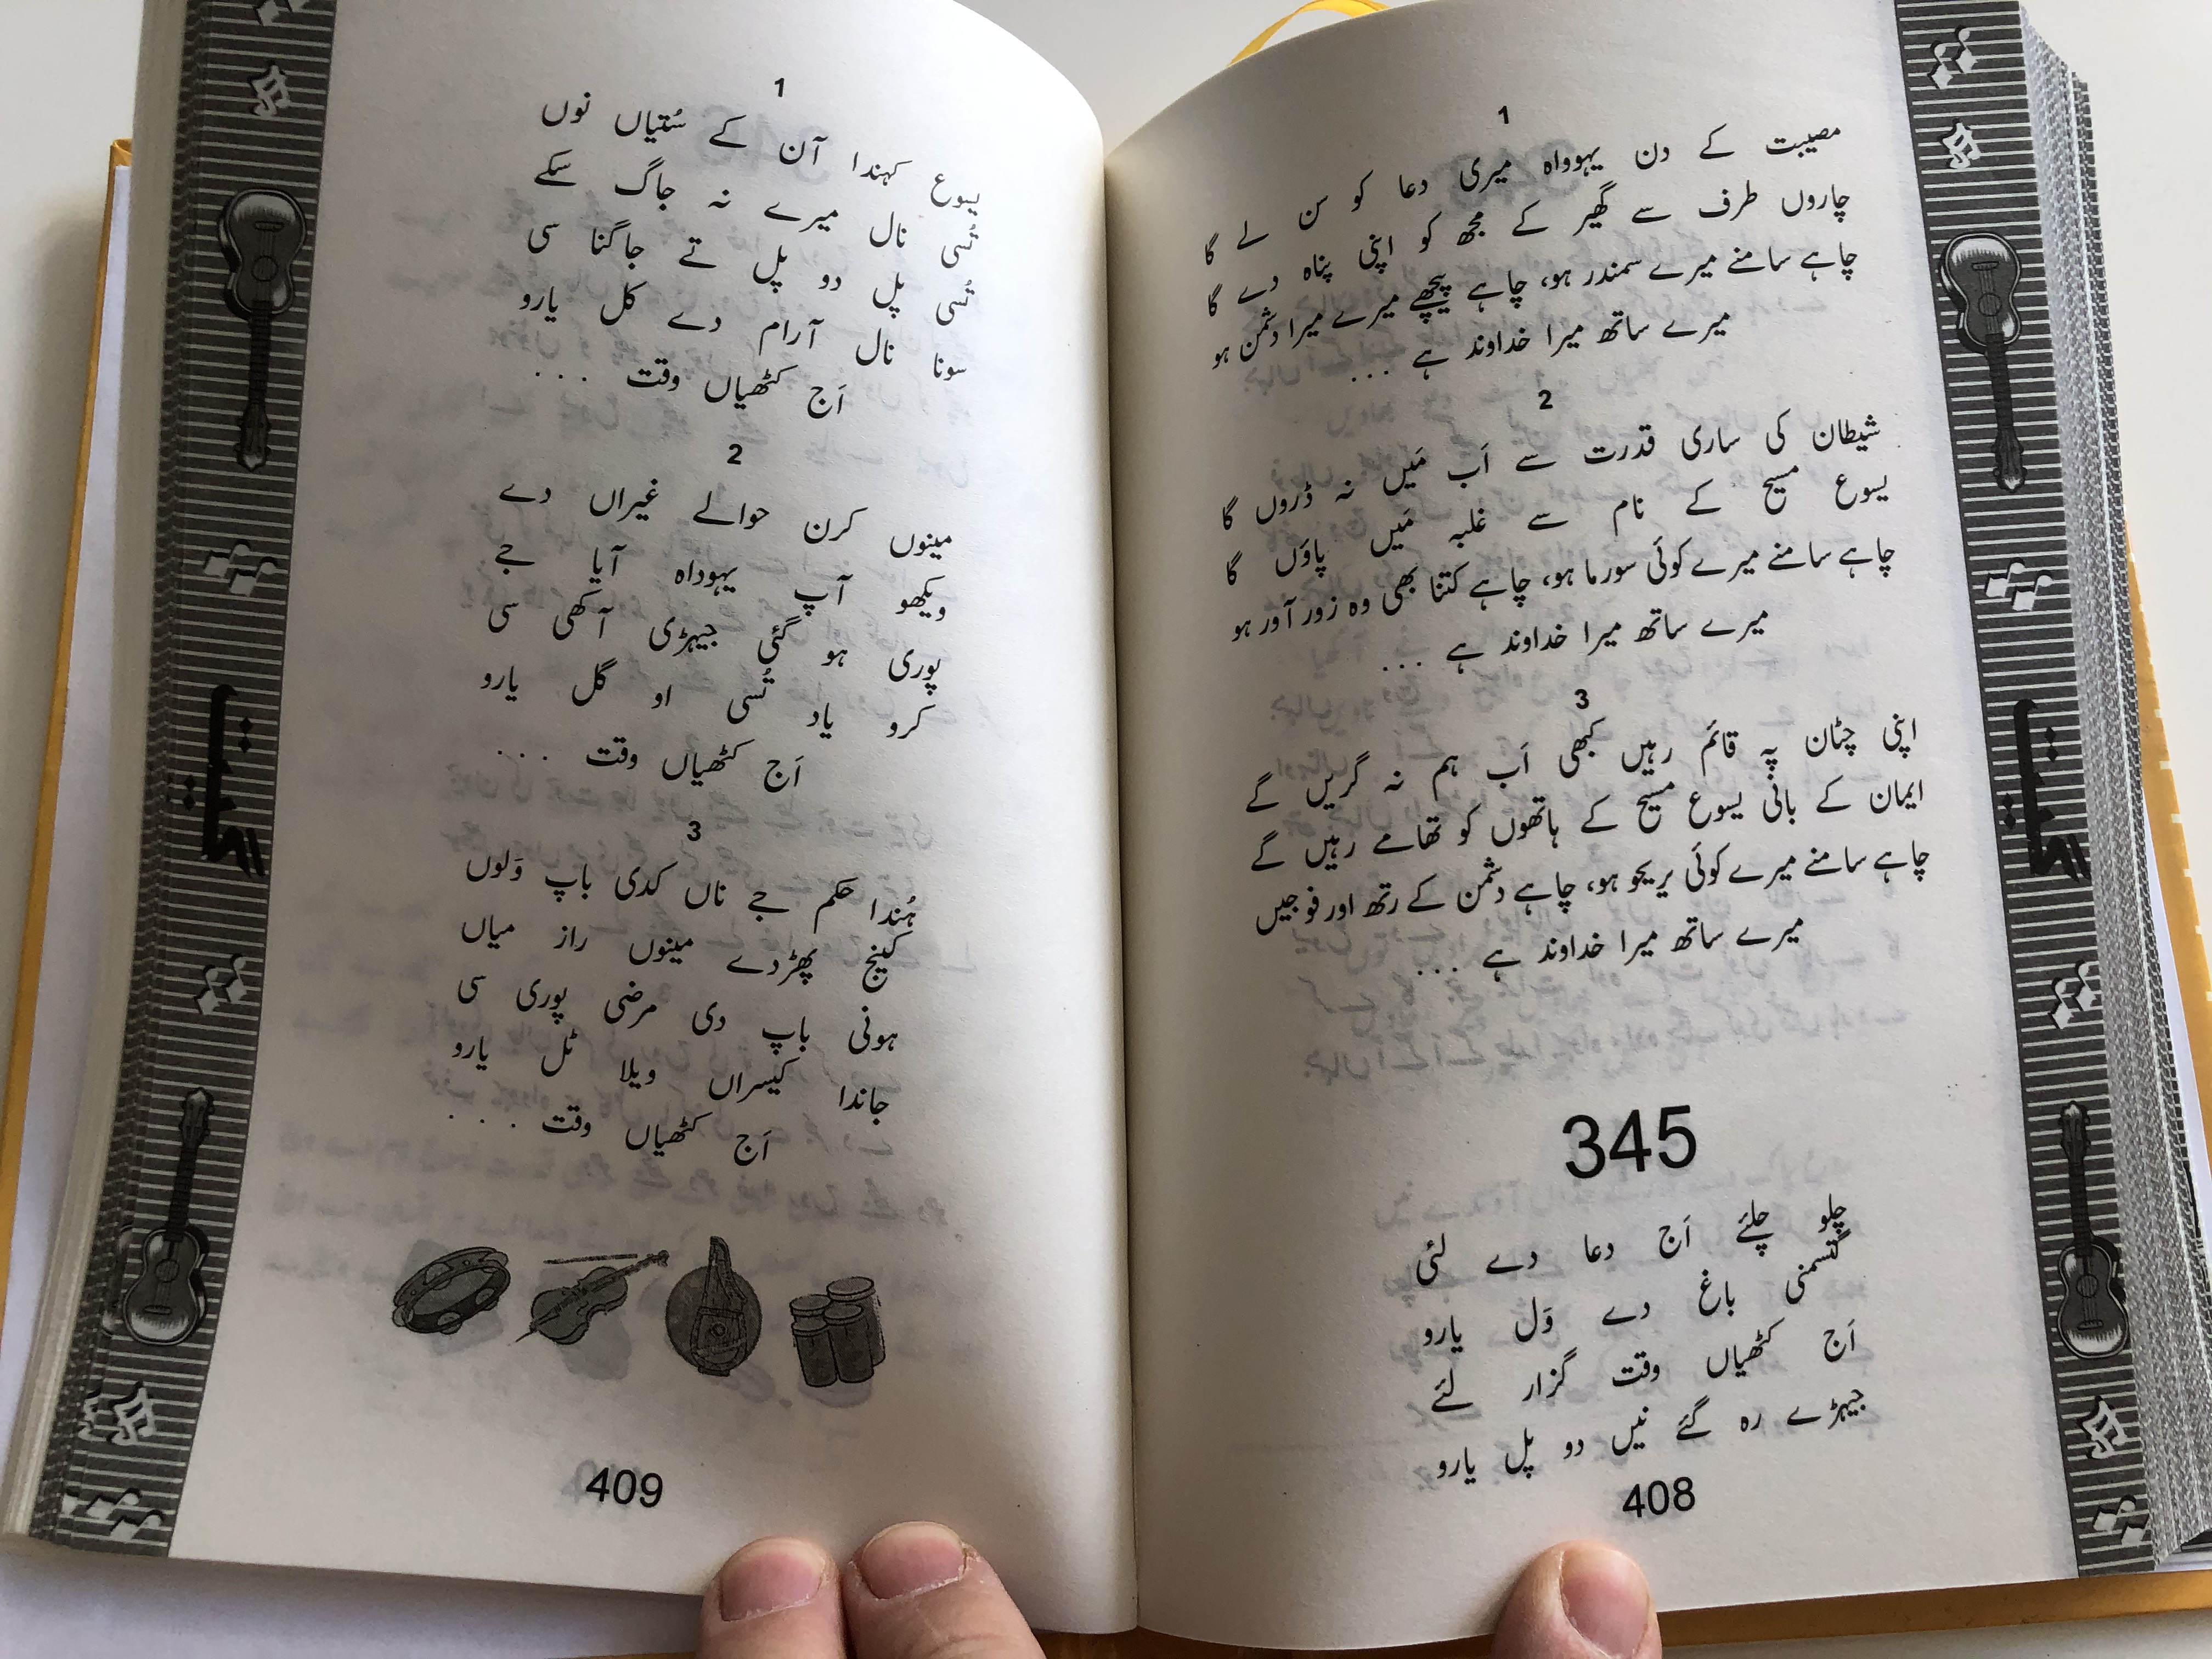 1
مصیبت کے دن یہوواہ میری دعا کو سن لے گا
چاروں طرف سے گھیر کے مجھ کو اپنی پناہ دے گا
چاہے سامنے میرے سمندر ہو، چاہے پیچھے میرے میرا دشمن ہو
میرے ساتھ میرا خداوند ہے ...
2
شیطان کی ساری قدرت سے اَب مَیں نہ ڈروں گا
یسوع مسیح کے نام سے غلبہ مَیں پاؤں گا
چاہے سامنے میرے کوئی سورما ہو، چاہے کتنا بھی وہ زور آور ہو
میرے ساتھ میرا خداوند ہے ...
3
اپنی چٹان پہ قائم رہیں کبھی اَب ہم نہ گریں گے
ایمان کے بانی یسوع مسیح کے ہاتھوں کو تھامے رہیں گے
چاہے سامنے میرے کوئی یریحو ہو، چاہے دشمن کے رتھ اور فوجیں
میرے ساتھ میرا خداوند ہے ...
345
چلو چلئے اَج دعا دے لئی
گتسمنی باغ دے وَل یارو
اَج کٹھیاں وقت گزار لئے
جیہڑے رہ گئے نیں دو پل یارو
408
گیت
1
یسوع کہندا آن کے سُتیاں نوں
تُسی نال میرے نہ جاگ سکے
تُسی پل دو پل تے جاگنا سی
سونا نال آرام دے کل یارو
اَج کٹھیاں وقت ...
2
مینوں کرن حوالے غیراں دے
ویکھو آپ یہوداہ آیا جے
پوری ہو گئی جیہڑی آکھی سی
کرو یاد تُسی او گل یارو
اَج کٹھیاں وقت ...
3
ہُندا حکم جے ناں کدی باپ وَلوں
کینج پھڑدے مینوں راز میاں
ہونی باپ دی مرضی پوری سی
جاندا کیسراں ویلا ٹل یارو
اَج کٹھیاں وقت ...
409
گیت